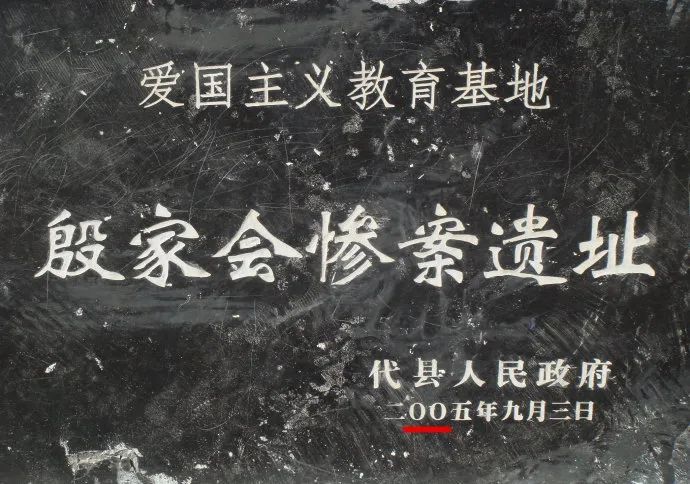 爱国主义教育基地
殷家会惨案遗址
代县人民政府
二〇〇五年九月三日